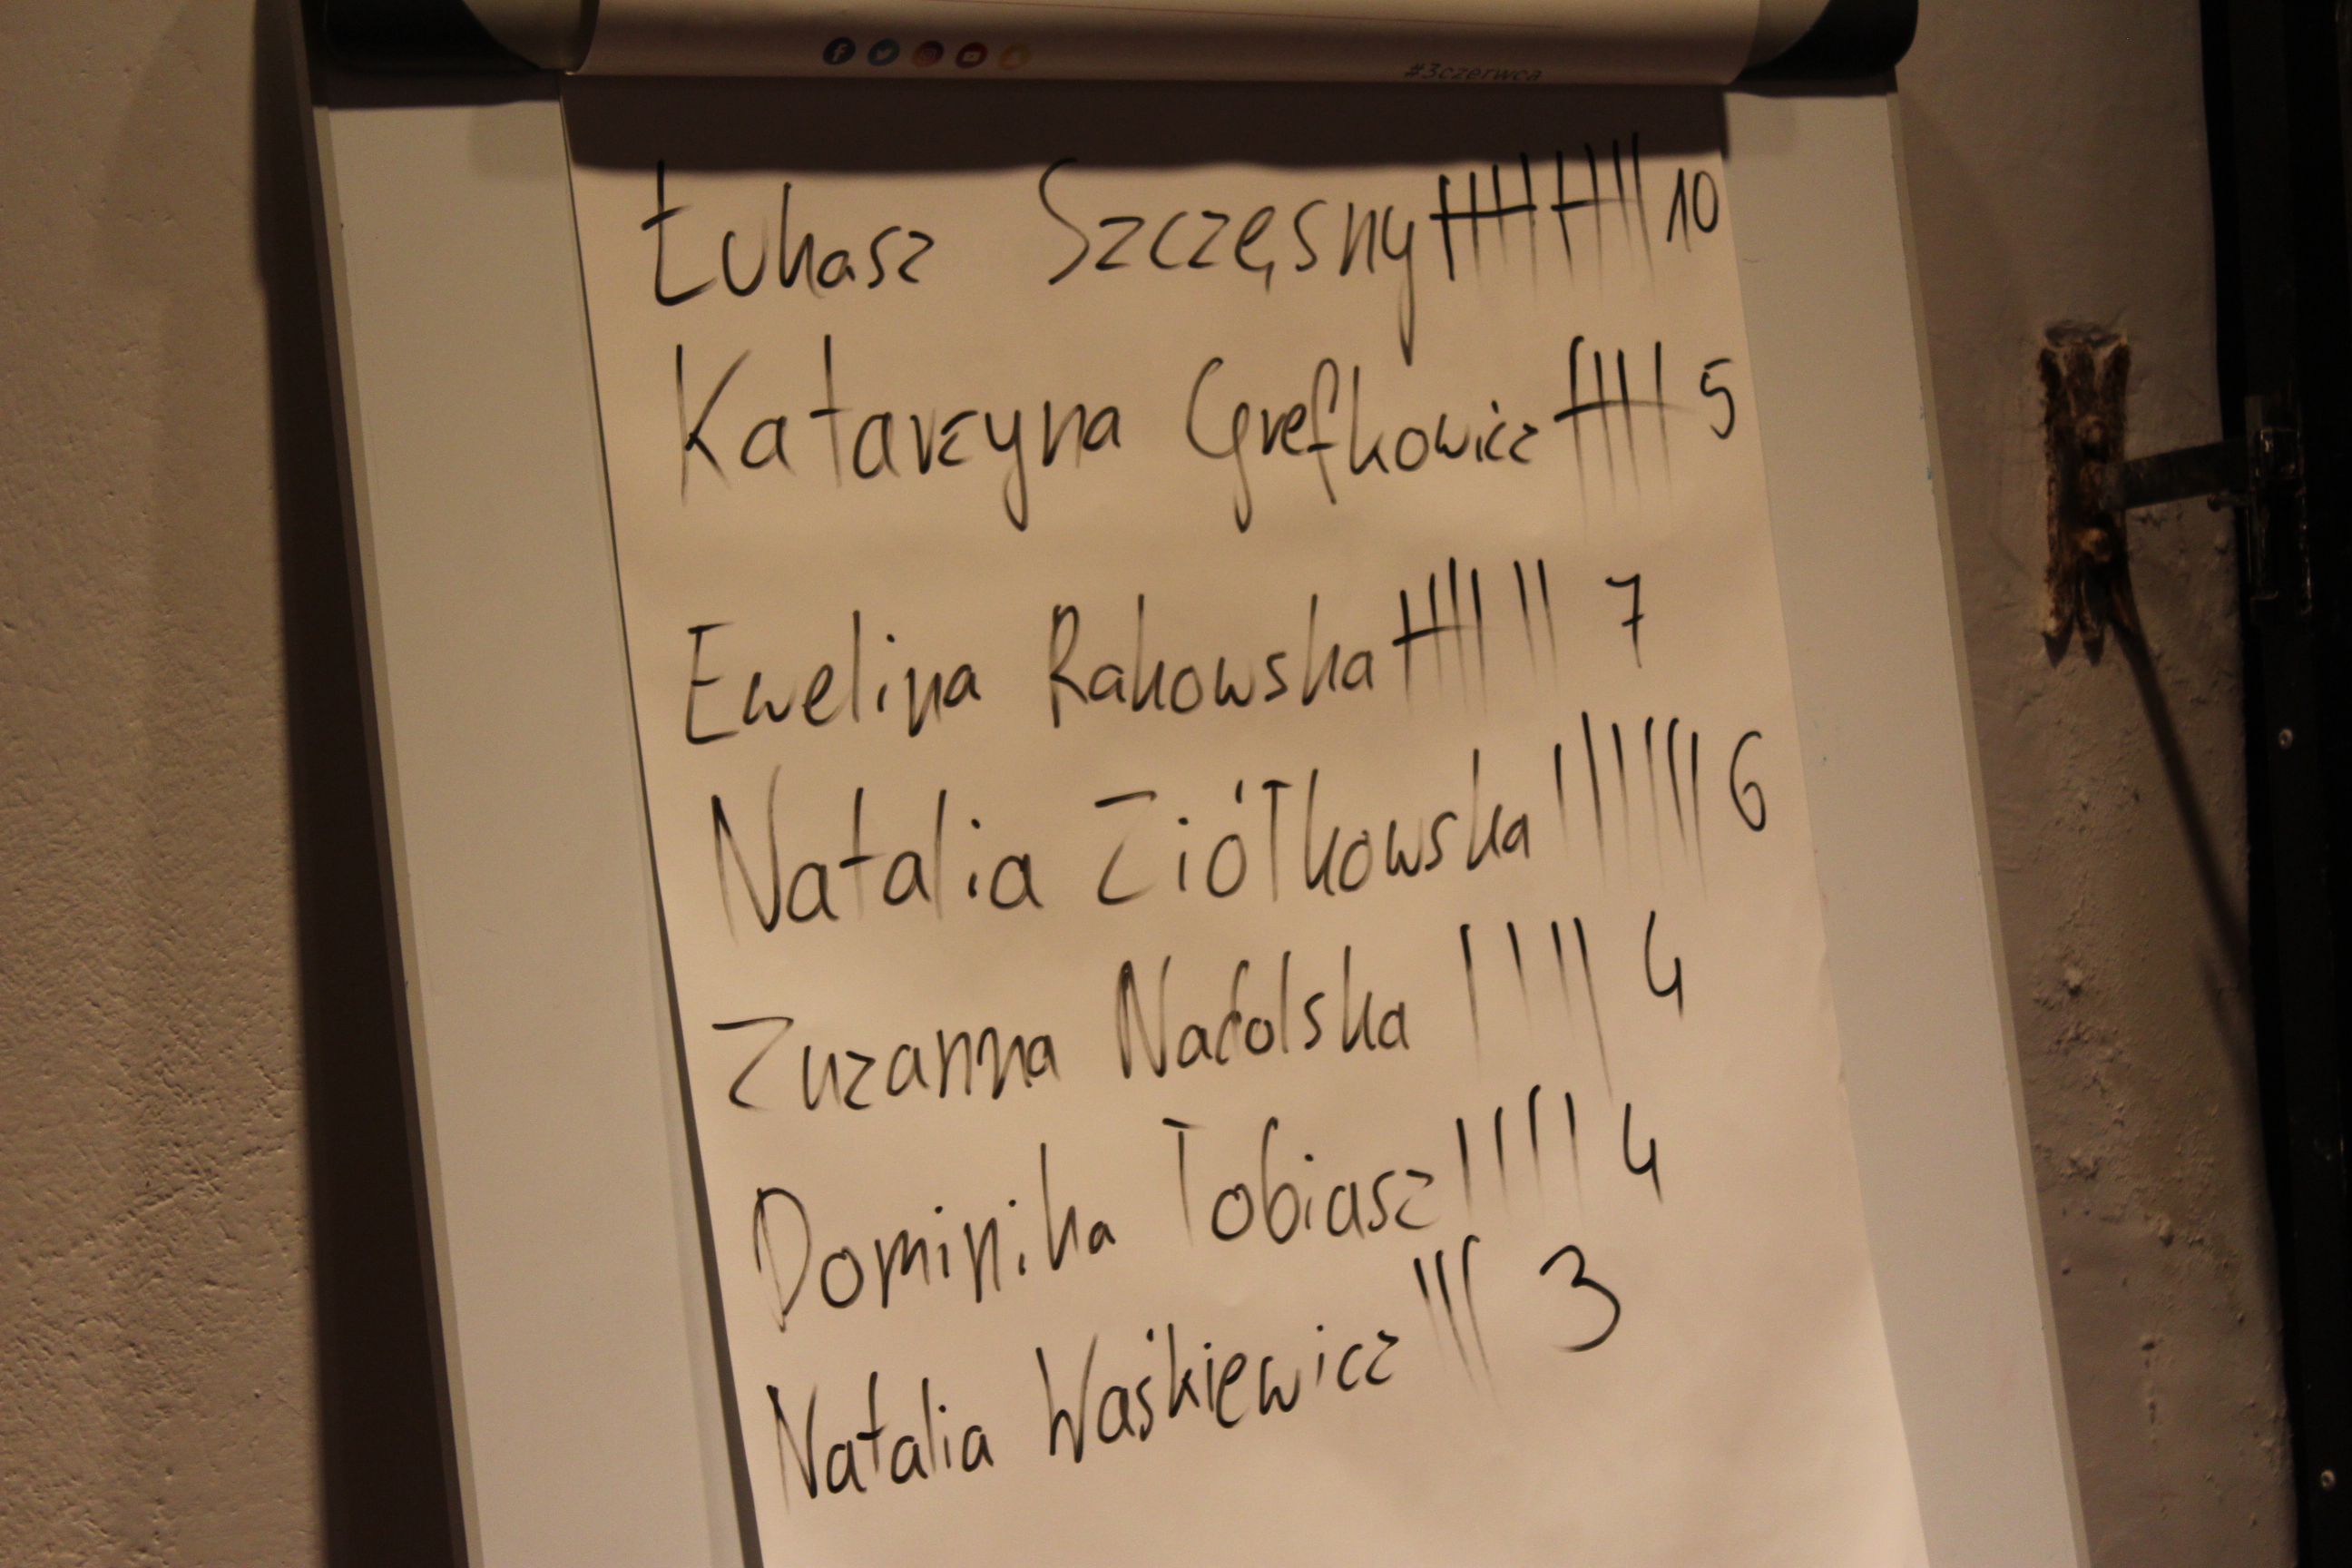 #3czerwca
Łukasz Szczęsny 10
Katarzyna Grefkowicz 5
Ewelina Rakowska 7
Natalia Ziółkowska 6
Zuzanna Natolska 4
Dominika Tobiasz 4
Natalia Waśkiewicz 3